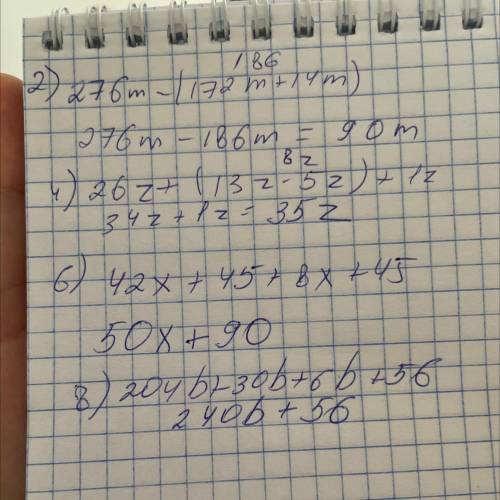 186
2) 276m - (172m + 14m)
276m - 186m = 90m
8z
4) 26z + (13z - 5z) + 1z
34z + 1z = 35z
6) 42x + 45 + 8x + 45
50x + 90
8) 204b + 30b + 6b + 56
240b + 56